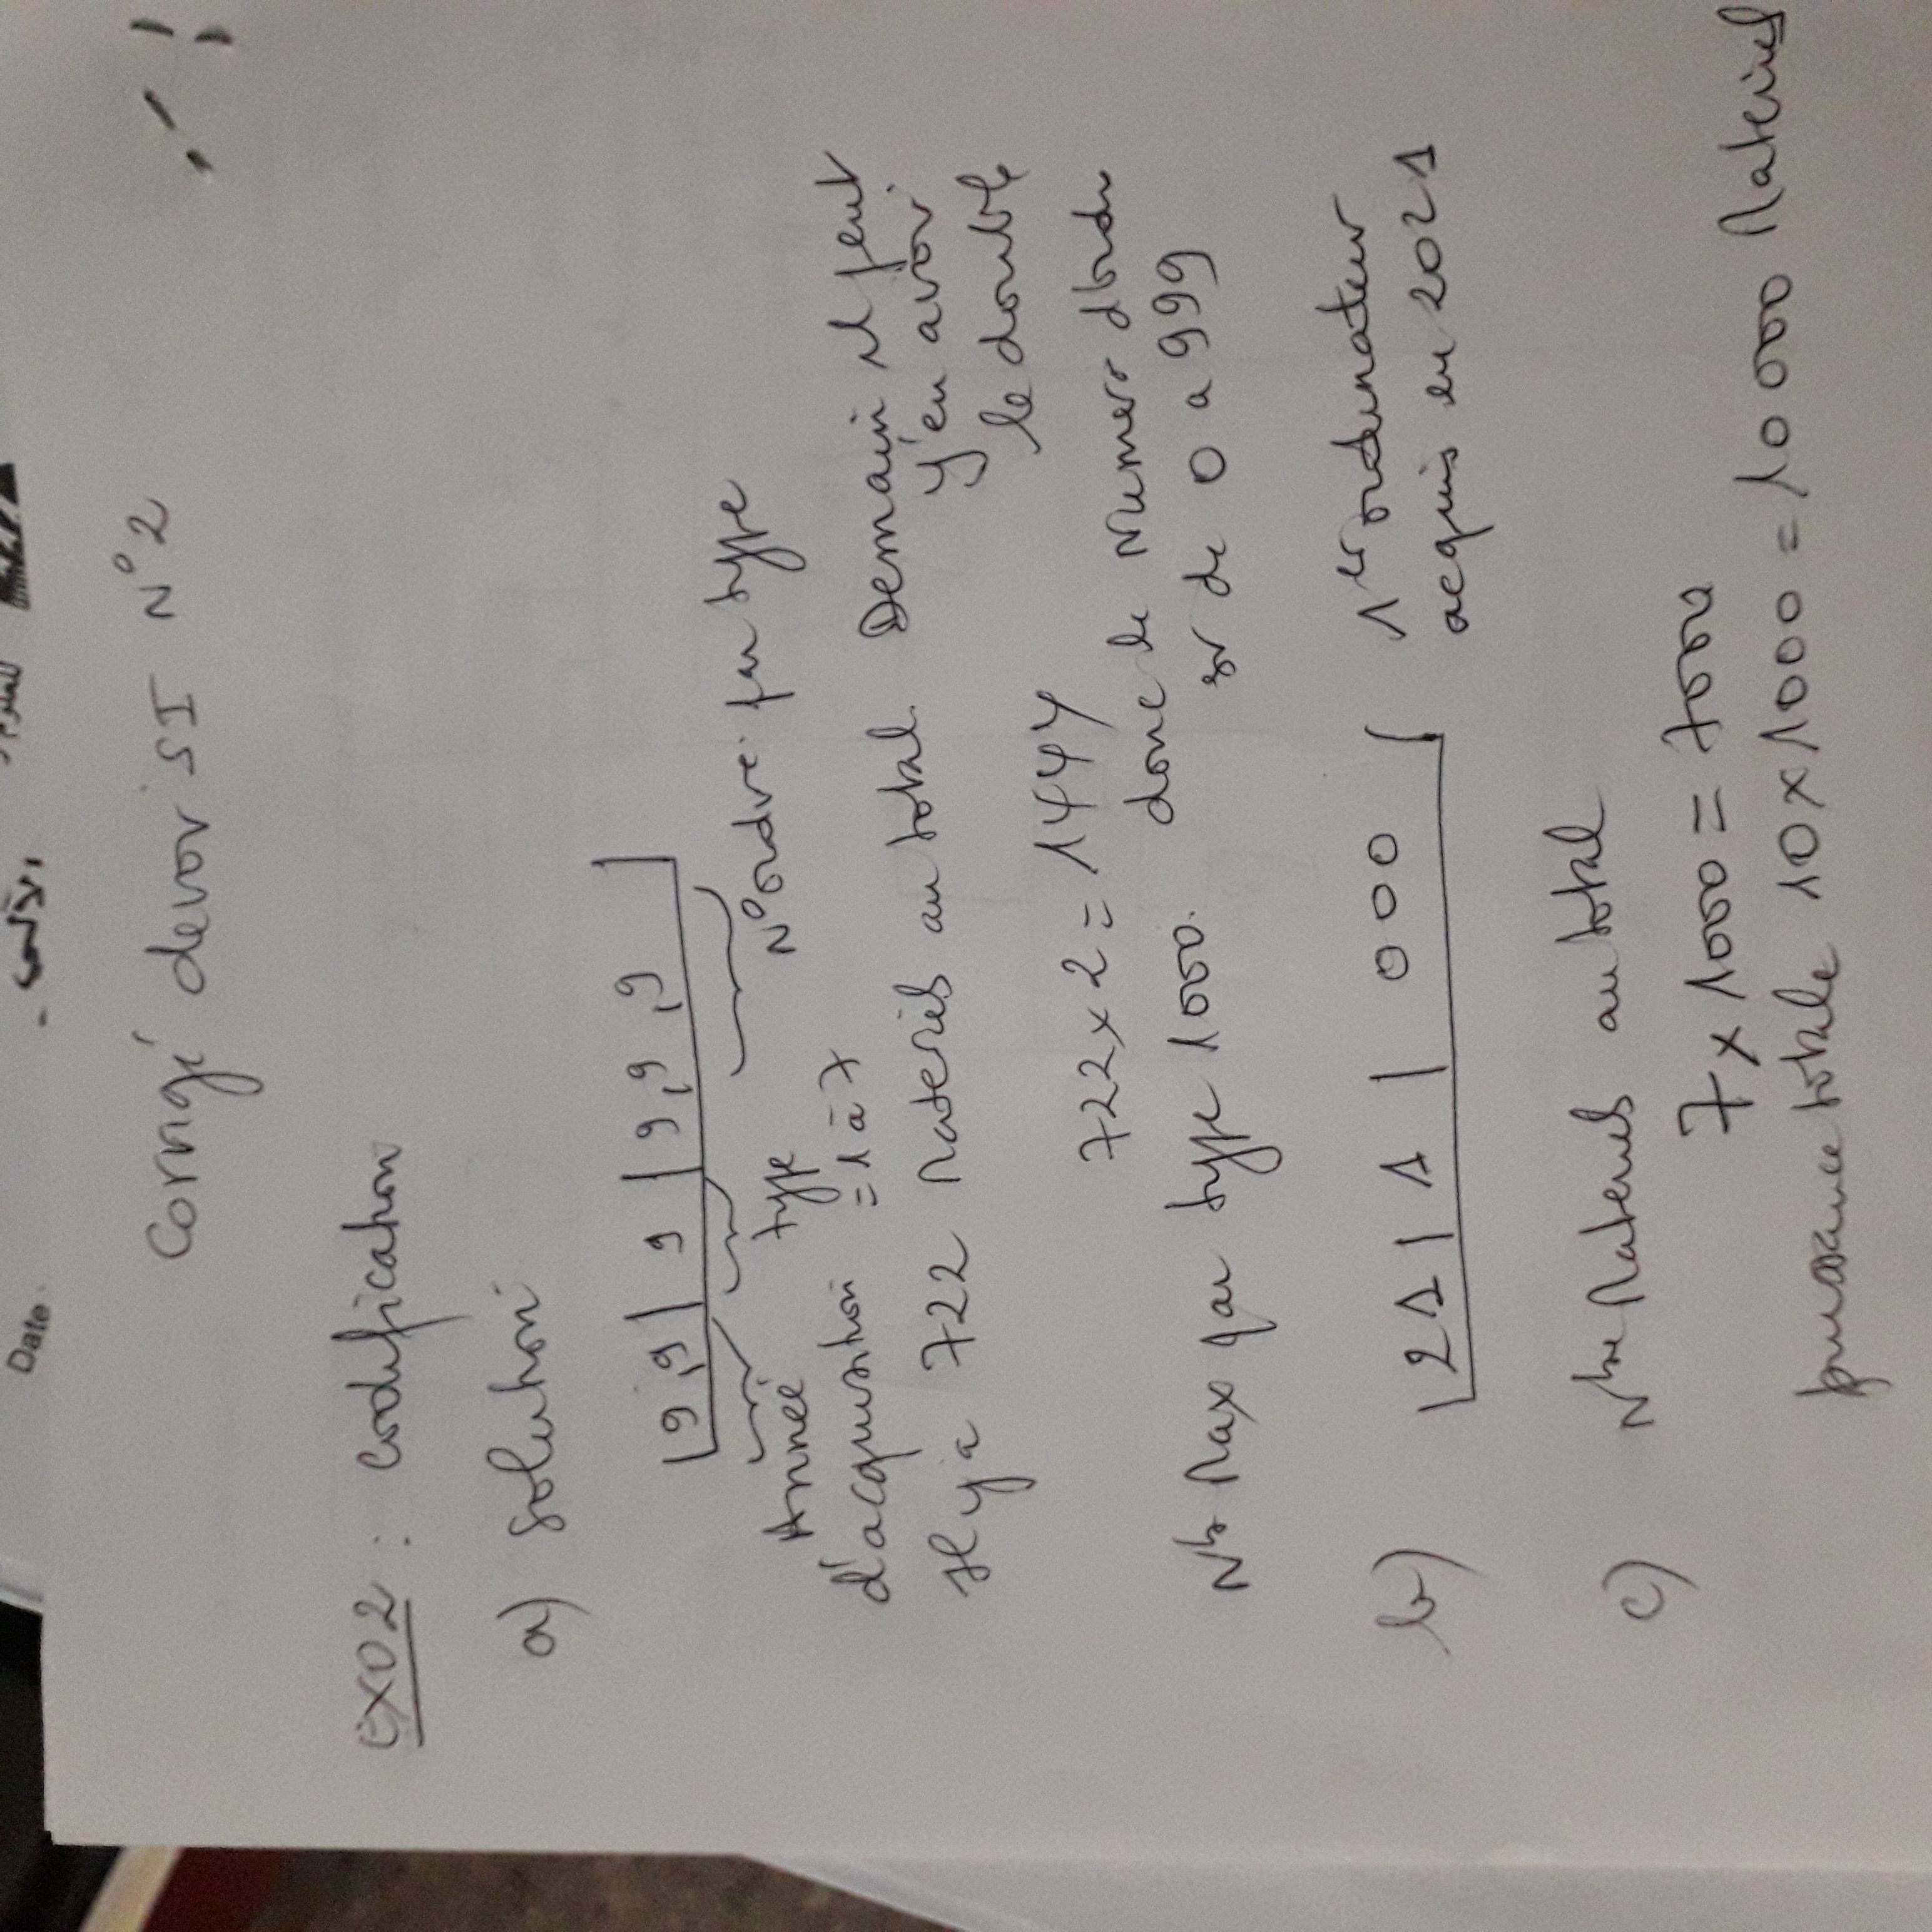 Date
Corrigé devoir SI N°2
EXO2 : Codification
a) Solution
9,9 | 9 | 9,9,9
Année type N° ordre par type
d'acquisition = 1 à 7
Il y a 722 Materiels au total. Demain il peut
y'en avoir
le double
722 x 2 = 1444
Nb Max par type 1000. donc le Numero d'ordre
de 0 a 999
b) 21 | 1 | 000 1er ordinateur
acquis en 2021
c) Nbre Materiels au total
7 x 1000 = 7000
puissance totale 10 x 1000 = 10 000 Materiels